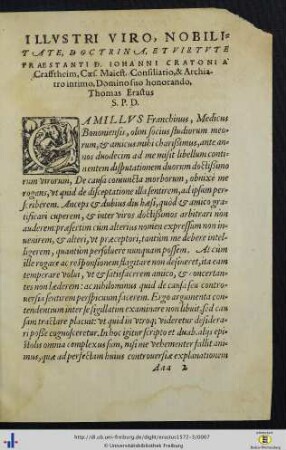 ILLVSTRI VIRO, NOBILI-
TATE, DOCTRINA, ET VIRTVTE
PRAESTANTI D. IOHANNI CRATONI A
Crafftheim, Cæs. Maiest. Consiliario, & Archia-
tro intimo, Domino suo honorando,
Thomas Erastus
S. P. D.
CAMILLVS Franchinus, Medicus
Bononiensis, olim socius studiorum meo-
rum, & amicus mihi charissimus, ante an-
nos duodecim ad me misit libellum conti-
nentem disputationem duorum doctissimo
rum virorum, De causa coniuncta morborum, obnixè me
rogans, vt quid de disceptatione illa sentirem, ad ipsum per-
scriberem. Anceps & dubius diu hæsi, quòd & amico gra-
tificari cuperem, & inter viros doctissimos arbitrari non
auderem: præsertim cùm alterius nomen expressum non in-
uenirem, & alteri, vt præceptori, tantùm me debere intelli-
gerem, quantùm persoluere nunquam possem. At cùm
ille rogare ac responsionem flagitare non desineret, ita eam
temperare volui, vt & satisfacerem amico, & concertan-
tes non læderem: ac nihilominus quid de causa sea contro-
uersia sentirem perspicuum facerem. Ergo argumenta con-
tendentium inter se sigillatim examinare non libuit, sed cau
sam tractare placuit: vt quid in vtroq; videretur desidera-
ri posse cognosceretur. In hoc igitur scripto et duab. aliis epi-
stolis omnia complexus sum, nisi me vehementer fallit ani-
mus, quæ ad perfectam huius controuersiæ explanationem
Aaa 2
http://dl.ub.uni-freiburg.de/diglit/erastus1572-3/0007
© Universitätsbibliothek Freiburg